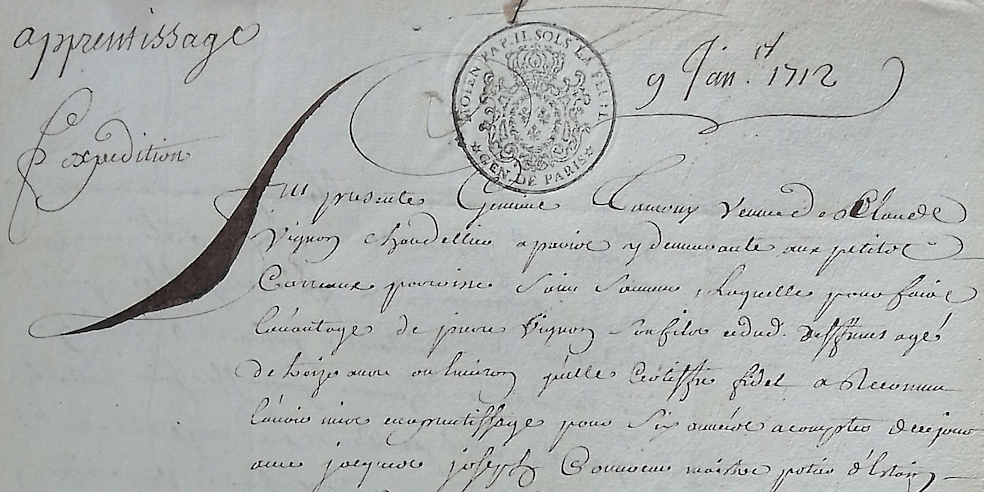 apprentissage
9 Janv.er 1712
MOIEN PAP. II. SOLS LA FEUILLE
GEN. DE PARIS
Expedition
Fut presente Geneviève Veuve de Claude
Vignon chandellier a paris y demeurante aux petits
Carreaux paroisse Saint Sauveur, laquelle pour faire
l'avantage de pierre Vignon son fils et dud. deffunt agé
de treize ans ou environ qu'elle Certiffie fidel a Reconnu
l'avoir mis en aprentissage pour six années a compter de ce jour
avec jacques joseph maistre potier d'Estain